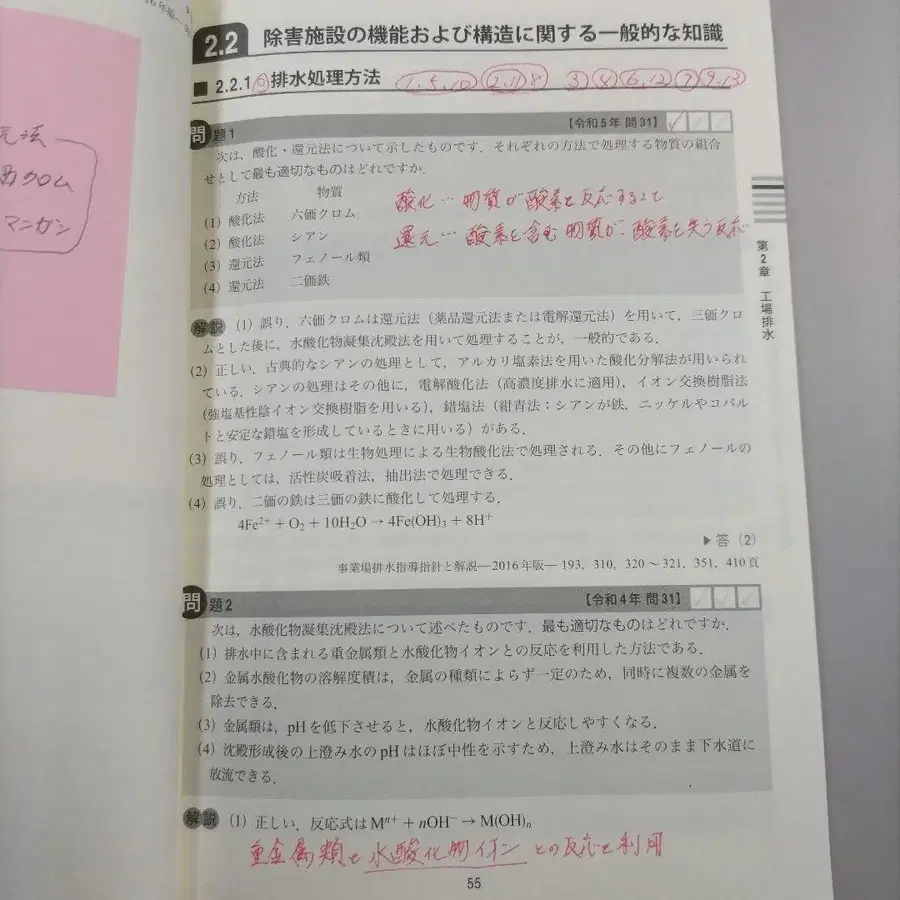 元法
クロム
マンガン
2.2 除害施設の機能および構造に関する一般的な知識
■ 2.2.1 排水処理方法 1.5.10 2.11 8 3 4 6.12 7 9.13
問題1 【令和5年 問31】
次は，酸化・還元法について示したものです．それぞれの方法で処理する物質の組合
せとして最も適切なものはどれですか．
方法 物質
(1) 酸化法 六価クロム
(2) 酸化法 シアン
(3) 還元法 フェノール類
(4) 還元法 二価鉄
酸化… 物質が酸素と反応すること
還元… 酸素を含む物質が酸素を失う反応
解説 (1) 誤り．六価クロムは還元法（薬品還元法または電解還元法）を用いて，三価クロ
ムとした後に，水酸化物凝集沈殿法を用いて処理することが，一般的である．
(2) 正しい．古典的なシアンの処理として，アルカリ塩素法を用いた酸化分解法が用いられ
ている．シアンの処理はその他に，電解酸化法（高濃度排水に適用），イオン交換樹脂法
（強塩基性陰イオン交換樹脂を用いる），錯塩法（紺青法；シアンが鉄，ニッケルやコバル
トと安定な錯塩を形成しているときに用いる）がある．
(3) 誤り．フェノール類は生物処理による生物酸化法で処理される．その他にフェノールの
処理としては，活性炭吸着法，抽出法で処理できる．
(4) 誤り．二価の鉄は三価の鉄に酸化して処理する．
4Fe²⁺ + O₂ + 10H₂O → 4Fe(OH)₃ + 8H⁺
▶答 (2)
事業場排水指導指針と解説―2016年版― 193，310，320～321，351，410頁
問題2 【令和4年 問31】
次は，水酸化物凝集沈殿法について述べたものです．最も適切なものはどれですか．
(1) 排水中に含まれる重金属類と水酸化物イオンとの反応を利用した方法である．
(2) 金属水酸化物の溶解度積は，金属の種類によらず一定のため，同時に複数の金属を
除去できる．
(3) 金属類は，pHを低下させると，水酸化物イオンと反応しやすくなる．
(4) 沈殿形成後の上澄み水のpHはほぼ中性を示すため，上澄み水はそのまま下水道に
放流できる．
解説 (1) 正しい．反応式は Mⁿ⁺ + nOH⁻ → M(OH)ₙ
重金属類と水酸化物イオンとの反応を利用
55
第2章 工場排水